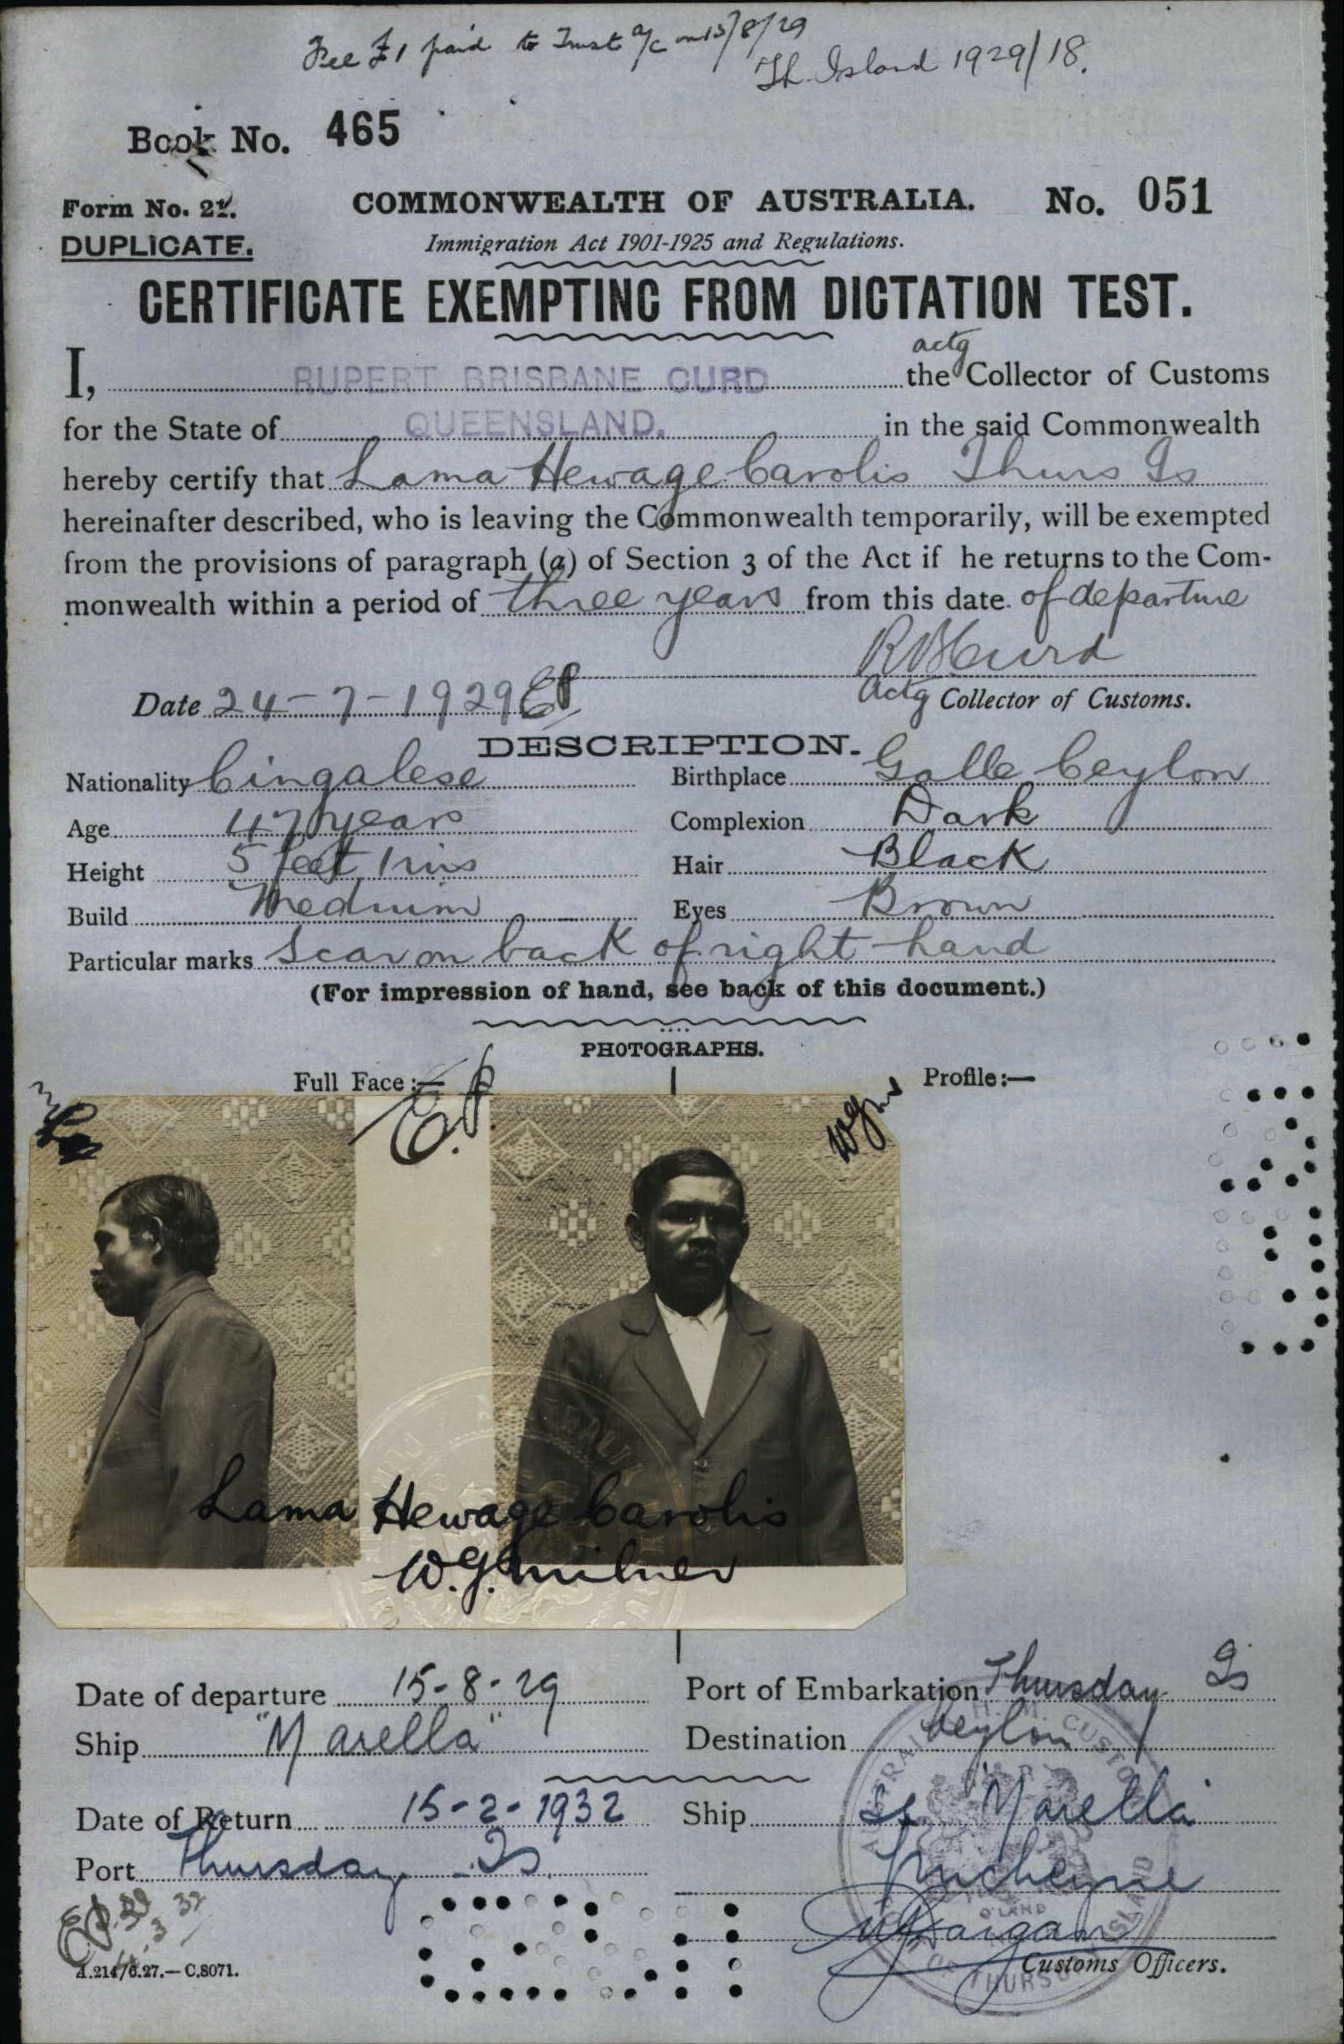 Fee £1 paid to Trust a/c on 15/8/29
Th. Island 1929/18.
Book No. 465
Form No. 21.
COMMONWEALTH OF AUSTRALIA. No. 051
DUPLICATE.
Immigration Act 1901-1925 and Regulations.
CERTIFICATE EXEMPTING FROM DICTATION TEST.
I, RUPERT BRISBANE CURD the actg Collector of Customs
for the State of QUEENSLAND. in the said Commonwealth
hereby certify that Lama Hewage Carolis Thurs Is
hereinafter described, who is leaving the Commonwealth temporarily, will be exempted
from the provisions of paragraph (a) of Section 3 of the Act if he returns to the Com-
monwealth within a period of three years from this date of departure
R B Curd
Date 24-7-1929 EP
Actg Collector of Customs.
DESCRIPTION.
Nationality Cingalese Birthplace Galle Ceylon
Age 47 years Complexion Dark
Height 5 feet 1 ins Hair Black
Build Medium Eyes Brown
Particular marks Scar on back of right hand
(For impression of hand, see back of this document.)
PHOTOGRAPHS.
Full Face:— Profile:—
E.P. WGM
Lama Hewage Carolis
W.G. Milner
Date of departure 15-8-29 Port of Embarkation Thursday Is
Ship "Marella" Destination Ceylon
Date of Return 15-2-1932 Ship ss "Marella"
Port Thursday Is
Customs Officers.
A.214/6.27.—C.8071.